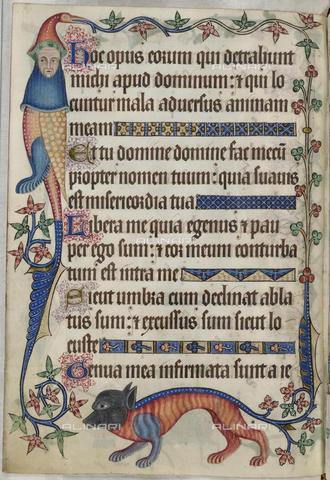 Hoc opus eorum qui detrahunt
michi apud dominum: ⁊ qui lo
cuntur mala adversus animam
meam
Et tu domine domine fac mecū
propter nomen tuum: quia suavis
est misericordia tua
Libera me quia egenus ⁊ pau
per ego sum: ⁊ cor meum conturba
tum est intra me
Sicut umbra cum declinat abla
tus sum: ⁊ excussus sum sicut lo
custe
Genua mea infirmata sunt a ie
ALINARI
ALINARI
ALINARI
ALINARI